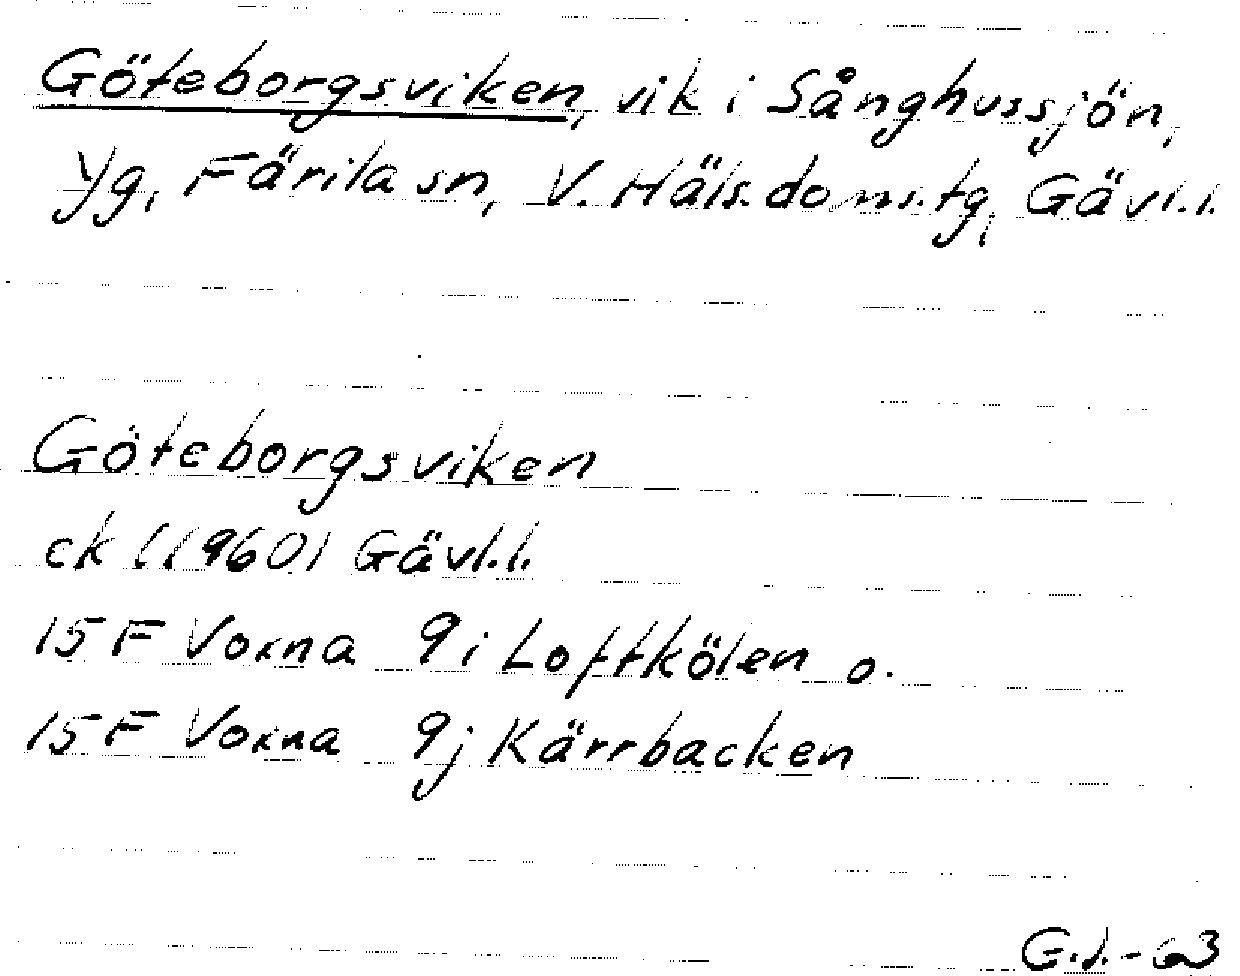 Göteborgsviken, vik i Sånghussjön,
yg, Färila sn, V. Häls. doms.tg, Gävl.l.
Göteborgsviken
ck (1960) Gävl.l.
15 F Voxna 9 i Loftkölen o.
15 F Voxna 9 j Kärrbacken